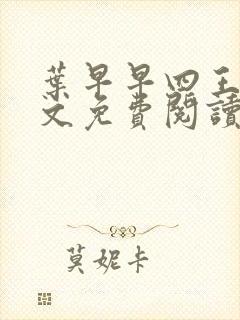 葉早早四王
文免費閱讀
莫妮卡